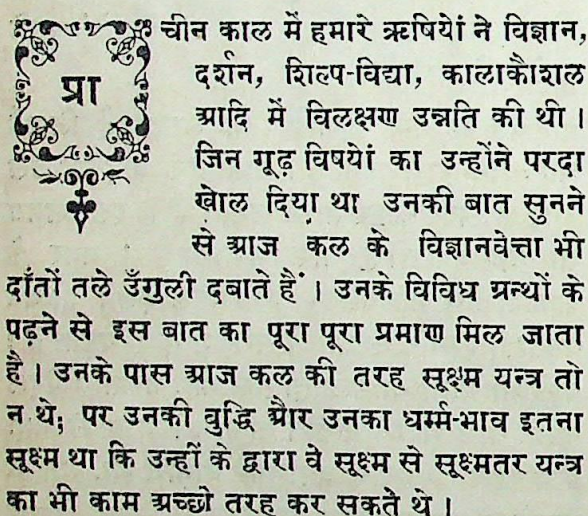 प्राचीन काल में हमारे ऋषियों ने विज्ञान,
दर्शन, शिल्प-विद्या, कालाकौशल
आदि में विलक्षण उन्नति की थी ।
जिन गूढ़ विषयों का उन्होंने परदा
खोल दिया था उनकी बात सुनने
से आज कल के विज्ञानवेत्ता भी
दाँतों तले उँगुली दबाते हैं । उनके विविध ग्रन्थों के
पढ़ने से इस बात का पूरा पूरा प्रमाण मिल जाता
है । उनके पास आज कल की तरह सूक्ष्म यन्त्र तो
न थे; पर उनकी बुद्धि और उनका धर्म्म-भाव इतना
सूक्ष्म था कि उन्हीं के द्वारा वे सूक्ष्म से सूक्ष्मतर यन्त्र
का भी काम अच्छी तरह कर सकते थे ।